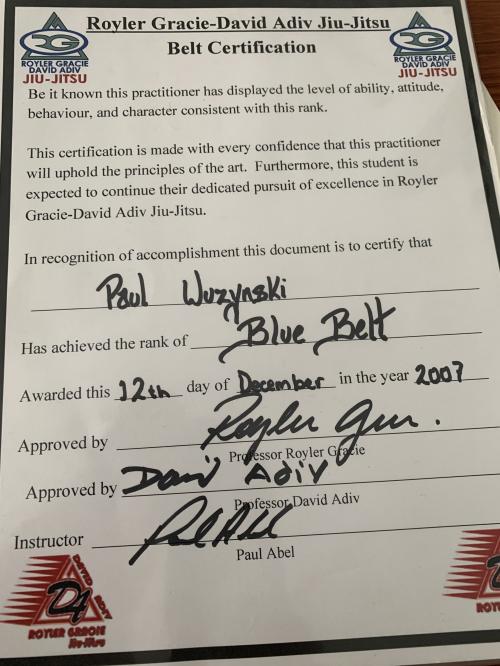 Royler Gracie-David Adiv Jiu-Jitsu
Belt Certification
ROYLER GRACIE
DAVID ADIV
JIU-JITSU
ROYLER GRACIE
DAVID ADIV
JIU-JITSU
Be it known this practitioner has displayed the level of ability, attitude,
behaviour, and character consistent with this rank.
This certification is made with every confidence that this practitioner
will uphold the principles of the art. Furthermore, this student is
expected to continue their dedicated pursuit of excellence in Royler
Gracie-David Adiv Jiu-Jitsu.
In recognition of accomplishment this document is to certify that
Paul Wuzynski
Has achieved the rank of Blue Belt
Awarded this 12th day of December in the year 2007
Approved by Royler
Professor Royler Gracie
Approved by David Adiv
Professor David Adiv
Instructor Paul Abel
Paul Abel
DAVID ADIV
DA
ROYLER GRACIE
Jiu-Jitsu
D
ROYL